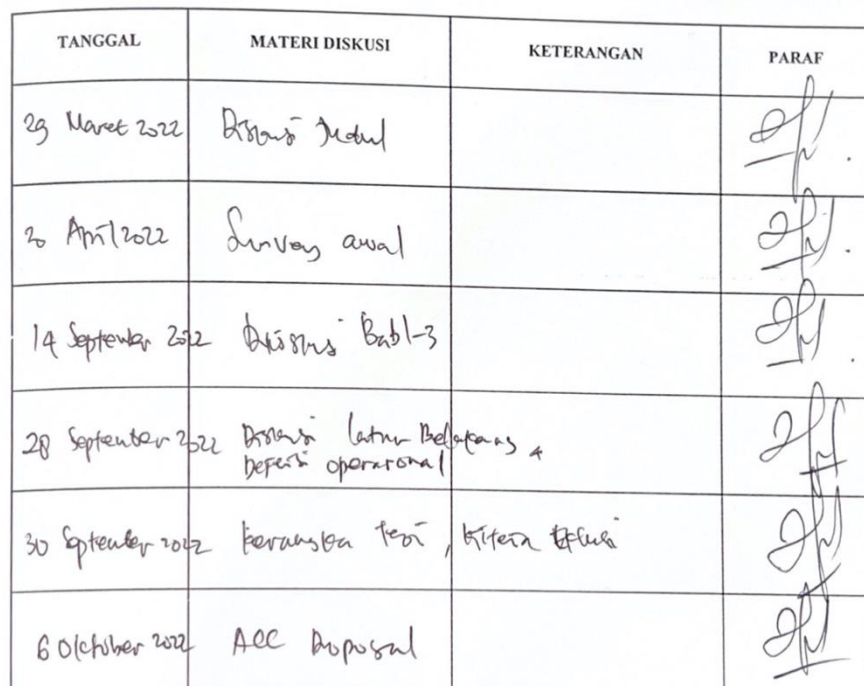 TANGGAL MATERI DISKUSI KETERANGAN PARAF
29 Maret 2022 Diskusi Judul
20 April 2022 Survey awal
14 September 2022 Diskusi Bab 1-3
28 September 2022 Diskusi Latar Belakang,
Defenisi operasional
30 September 2022 Kerangka teori, Kriteria Eklusi
6 Oktober 2022 ACC Proposal